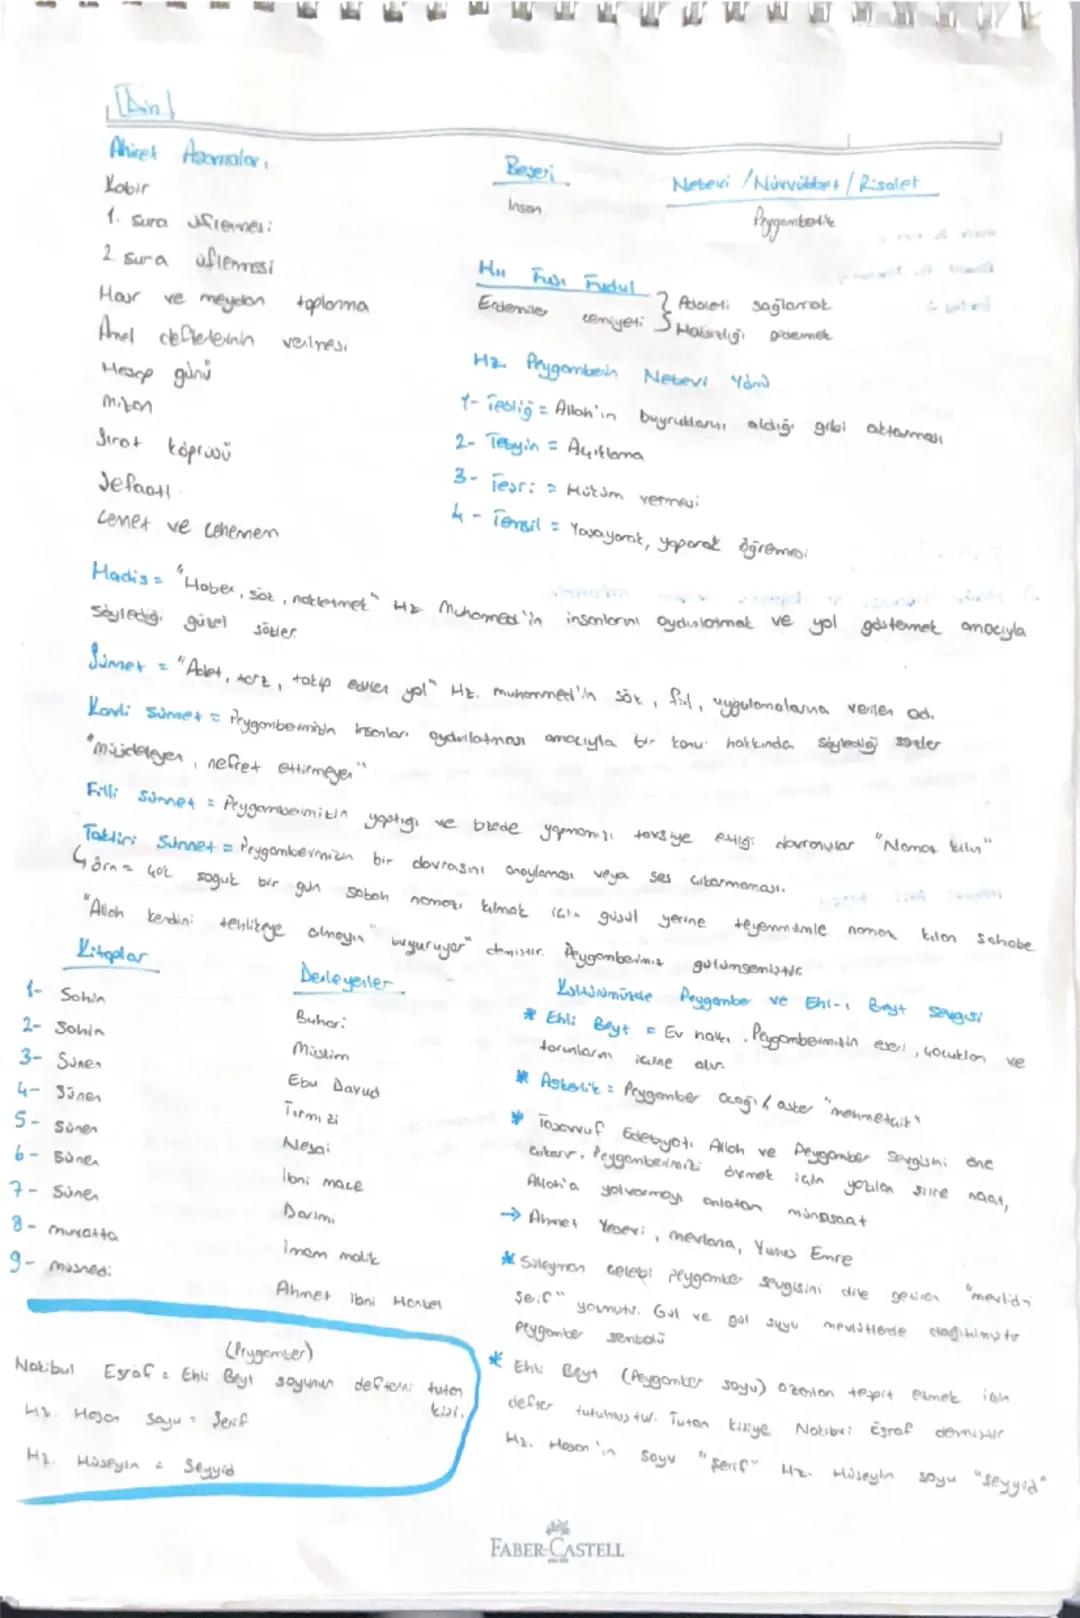 [Din]
Ahiret Aşamaları
Kabir
1. sura üflemesi
2. sura üflemesi
Haşr ve meydan toplanma
Amel defterlerinin verilmesi
Hesap günü
mizan
Sırat köprüsü
Şefaat
Cenet ve cehenem
Beşeri
İnsan
Nebevi / Nüvvübbet / Risalet
Peygamberlik
Fudul
Erdemliler cemiyeti
Adaleti sağlamak
Haksızlığı gidermek
Hz. Peygamberin Nebevi Yönü
1- Tebliğ = Allah'ın buyruklarını aldığı gibi aktarması
2- Tebyin = Açıklama
3- Teşri = Hüküm vermesi
4- Temsil = Yaşayarak, yaparak öğremesi
Hadis = "Haber, söz, nakletmek" Hz Muhammed'in insanlarını aydınlatmak ve yol göstermek amacıyla
söylediği güzel sözler.
Sünnet = "Adet, tarz, takip edilen yol" Hz. muhammed'in söz, fiil, uygulamalarına verilen ad.
Kavli sünnet = Peygamberimizin insanları aydınlatması amacıyla bir konu hakkında söylediği sözler
"Müjdeleyen, nefret ettirmeyen"
Fiili sünnet = Peygamberimizin yaptığı ve bizede yapmamızı tavsiye ettiği davranışlar "Namaz kılın"
Takriri Sünnet = Peygamberimizin bir davrasını onaylaması veya ses çıkarmaması.
↳ örn = çok soğuk bir gün sabah namazı kılmak için güsül yerine teyemmümle namaz kılan Sahabe
"Allah kendini tehlikeye atmayın" buyuruyor" demiştir. Peygamberimiz gülümsemiştir
Kitaplar
1- Sahih
2- Sahih
3- Sünen
4- Sünen
5- Sünen
6- Sünen
7- Sünen
8- muvatta
9- müsnedi
Derleyenler
Buhari
Müslim
Ebu Davud
Tirmizi
Nesai
İbni mace
Darimi
imam malik
Ahmet ibni Hanbel
Kültürümüzde Peygamber ve Ehl-i Beyt sevgisi
* Ehli Beyt = Ev halkı. Peygamberimizin eşeri, çocukları ve
torunlarını içine alır.
* Askerlik = Peygamber ocağı, asker "mehmetcik"
* Tasavvuf Edebiyatı Allah ve Peygamber sevgisini öne
çıkarır. Peygamberimizi övmek için yazılan şiire naat,
Allah'a yalvarmayı anlatan münasaat
→ Ahmet Yesevi, mevlana, Yunus Emre
* Süleyman Çelebi peygamber sevgisini dile getiren "mevlid-i
Şerif" yazmıştır. Gül ve gül suyu mevlütlerde
peygamber sembolü
* Ehli Beyt (Peygamber soyu) tespit etmek için
defter tutulmuştur. Tutan kişiye Nakibul Eşraf demiştir
Hz. Hasan'ın soyu "Şerif" Hz. Hüseyin soyu "Seyyid"
(Peygamber)
Nakibul Eşraf = Ehli Beyt soyunun defterini tutan
kişi.
Hz. Hasan soyu = Şerif
Hz. Hüseyin = Seyyid
FABER-CASTELL